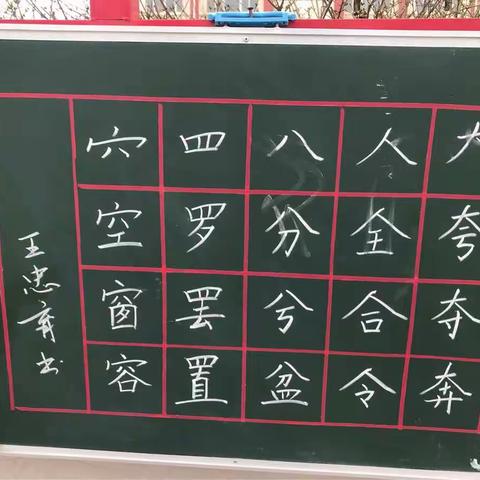 大夸夺奔
人全合令
八分兮盆
四罗罢置
穴空窗容
王忠育书